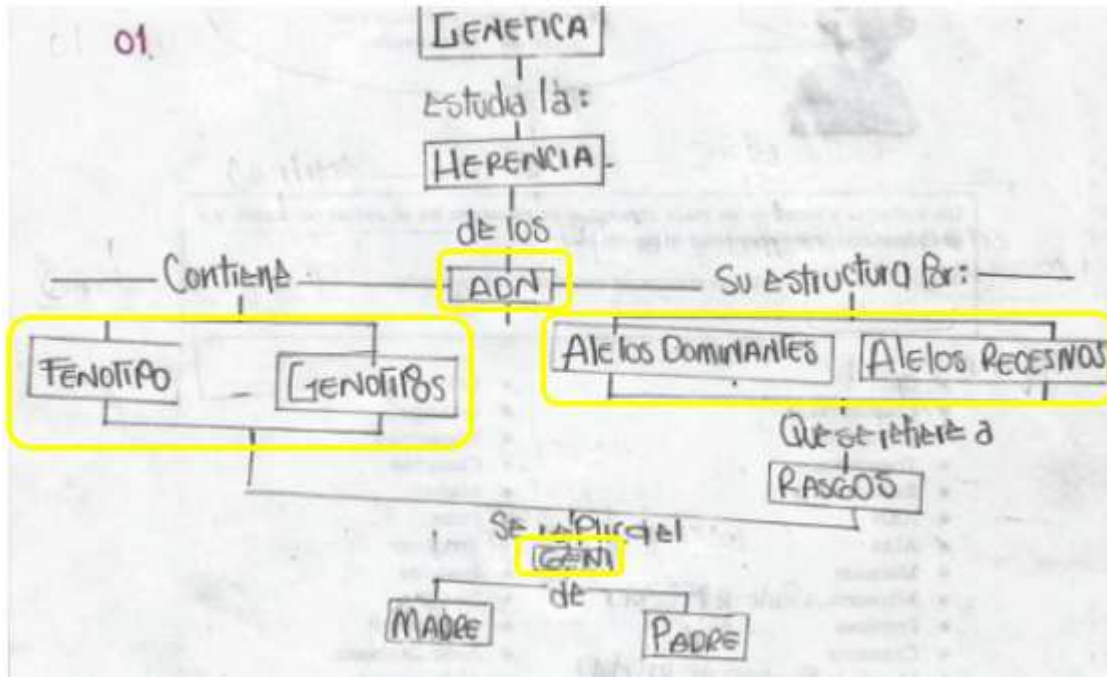 01
GENETICA
Estudia la:
HERENCIA
de los
Contiene
ADN
Su estructura Por:
FENOTIPO
GENOTIPOS
Alelos DOMINANTES
Alelos RECESIVOS
Que se refiere a
RASGOS
Se
el
GEN
de
MADRE
PADRE